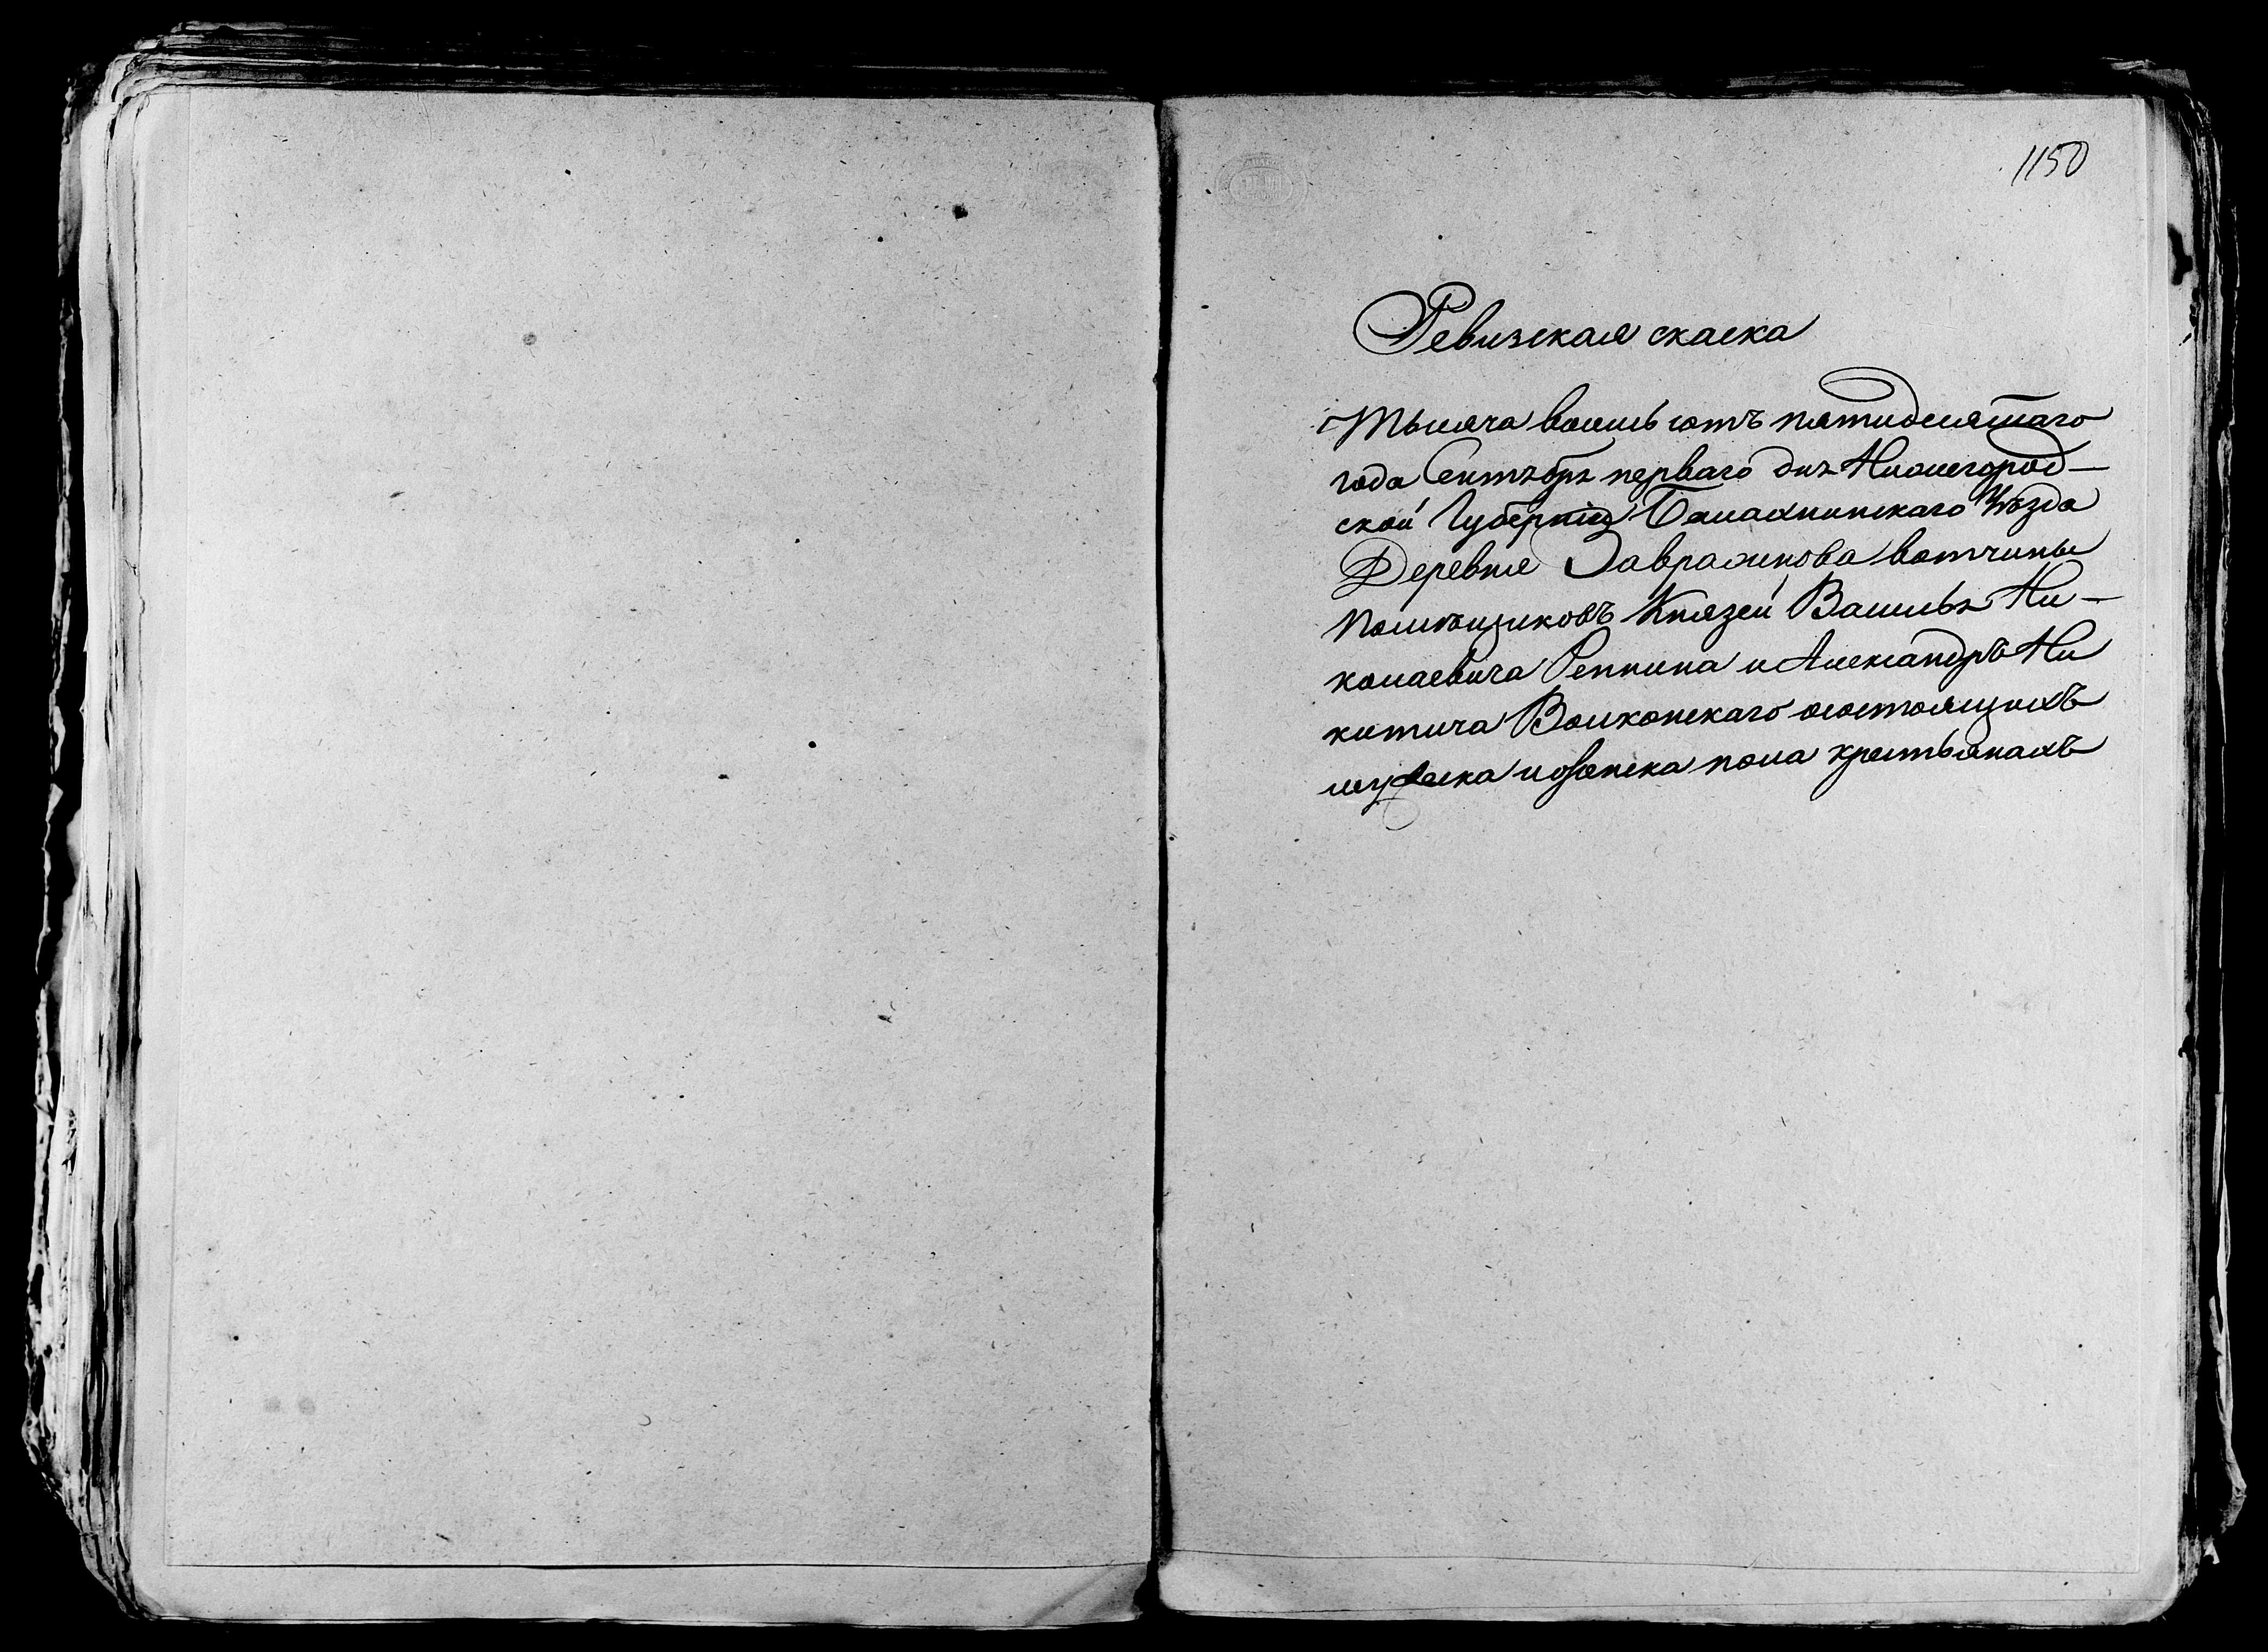 1150
Ревизская скаска
Тысяча восемь сотъ пятидесятаго
года Сентября перваго дня Нижегород-
ской Губерніи Балахнинскаго Уѣзда
Деревне Завражнова вотчины
помѣщиковъ Князей Василья Ни-
колаевича Репнина и Александра Ни
китича Волконскаго осостоящихъ
мужеска иженска пола крестьянахъ